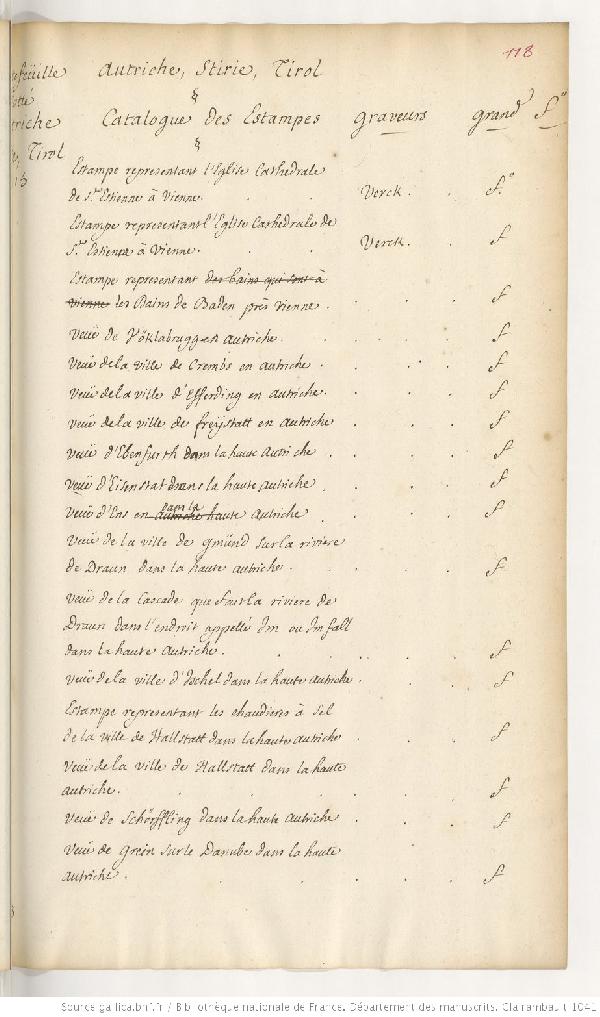 118
Autriche, Stirie, Tirol
§
Catalogue des Estampes graveurs grand f°
§
Tirol
Estampe representant l'Eglise Cathedrale
de St Estienne à Vienne. Verck. f.°
Estampe representant l'Eglise Cathedrale de
St Estienne à Vienne. Verck. f
Estampe representant des bains qui sont à
Vienne les Bains de Baden près Vienne. f
Veuë de Vöklabrugg en autriche. f
Veuë de la ville de Crembs en autriche. f
Veuë de la ville d'Efferding en autriche. f
Veuë de la ville de freÿstatt en autriche f
Veuë d'Ebenfurth dans la haute Autriche. f
Veuë d'Eisenstat dans la haute autriche. f
dans la
Veuë d'Ens en autriche haute Autriche. f
Veuë de la ville de gmünd sur la riviere
de Draun dans la haute autriche. f
Veuë de la Cascade que fait la riviere de
Draun dans l'endroit appellé Im ou Imfall
dans la haute Autriche. f
Veuë de la ville d'Ischel dans la haute autriche. f
Estampe representant les chaudieres à Sel
de la ville de Hallstatt dans la haute autriche. f
Veuë de la ville de Hallstatt dans la haute
autriche. f
Veuë de Schörffling dans la haute Autriche. f
Veuë de grein sur le Danube dans la haute
autriche. f
Source gallica.bnf.fr / Bibliothèque nationale de France. Département des manuscrits. Clairambault 1041